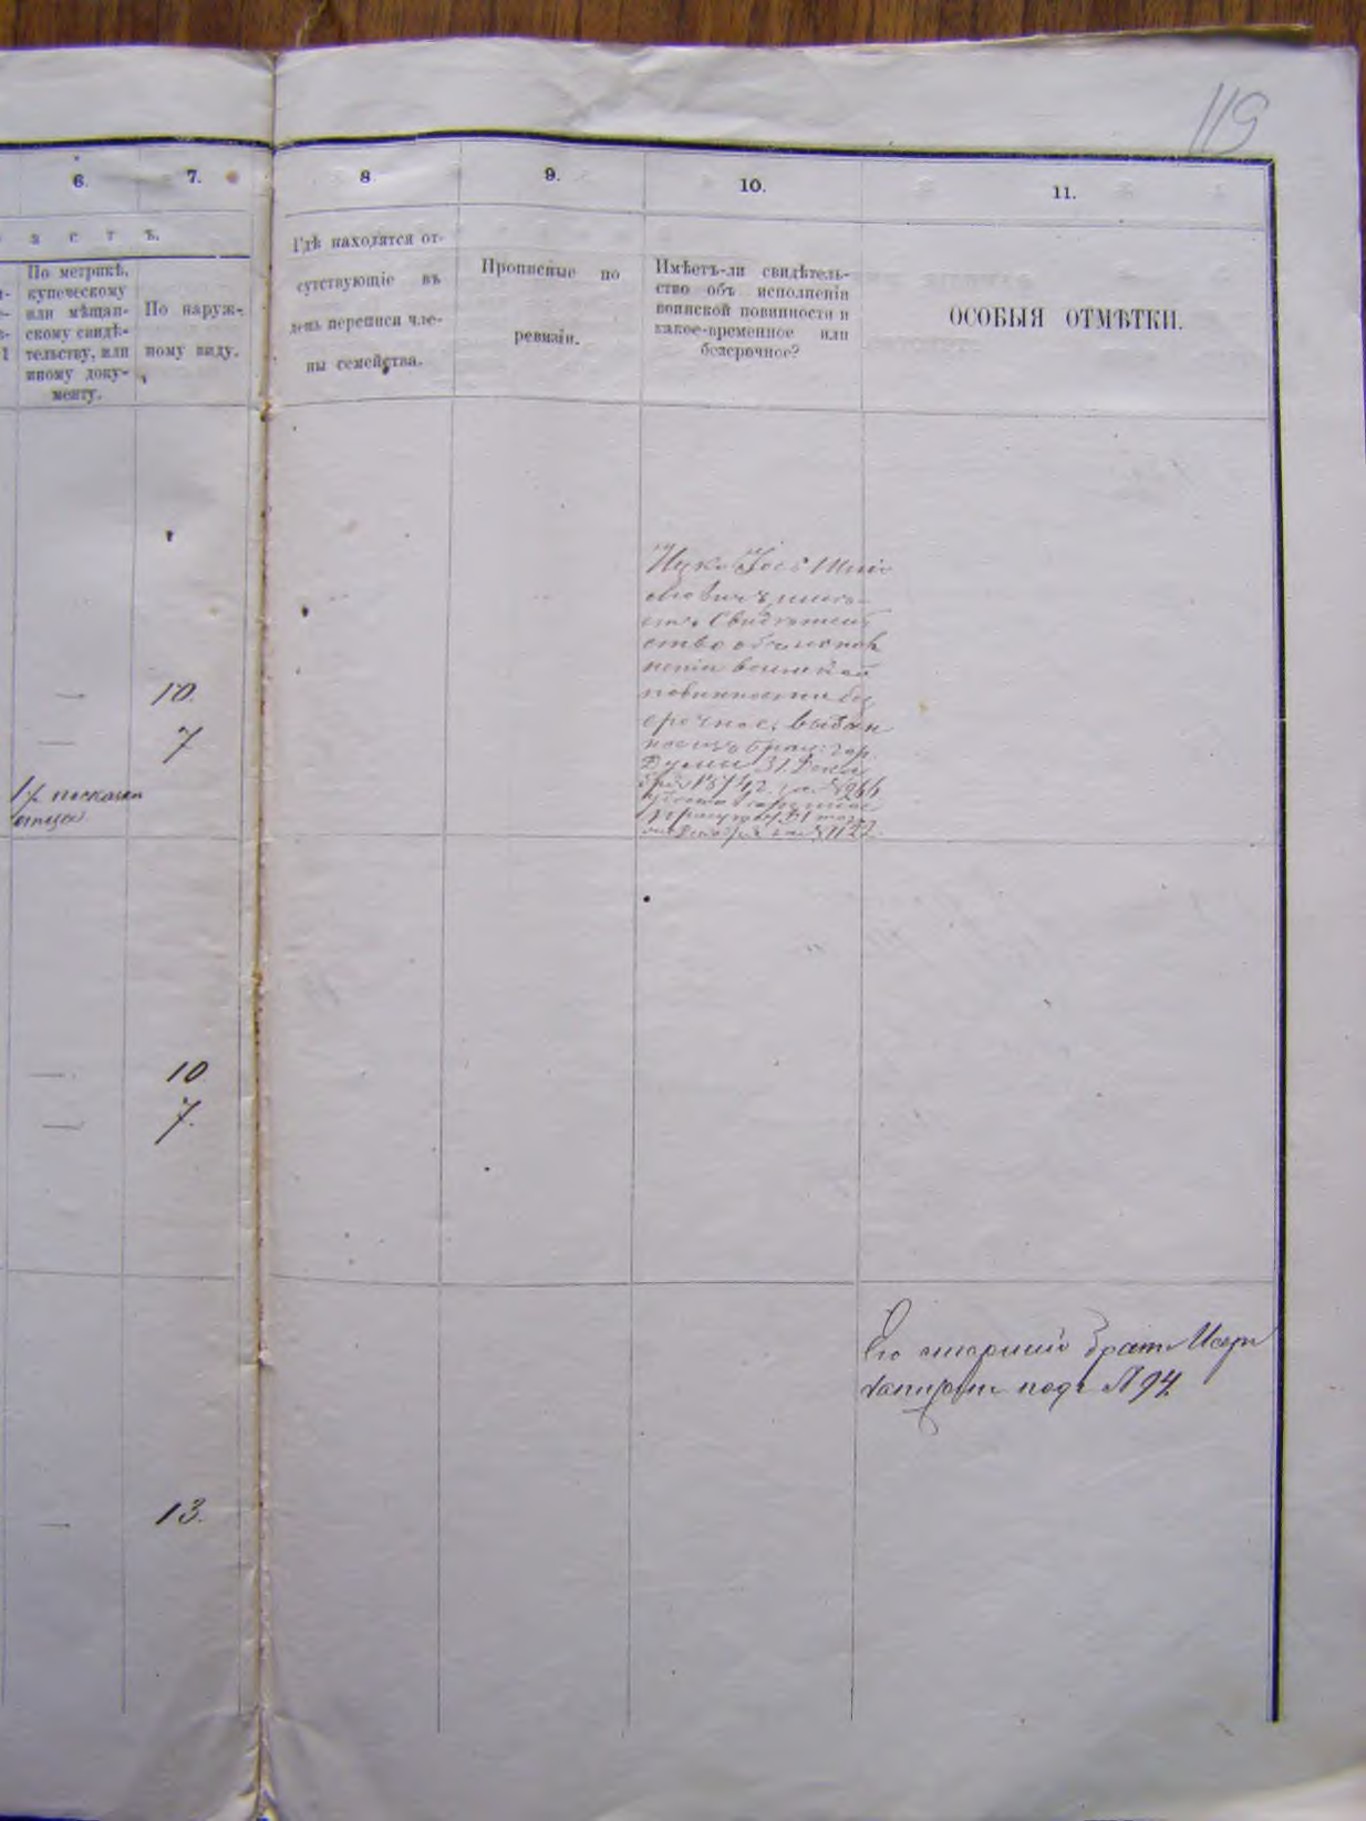 119
6.
7.
8
9.
10.
11.
а с т ъ.
По метрикѣ,
купеческому
или мѣщан-
скому свидѣ-
тельству, или
иному доку-
менту.
По наруж-
ному виду.
Гдѣ находятся от-
сутствующіе въ
день переписи чле-
ны семейства.
Прописные по
ревизіи.
Имѣетъ-ли свидѣтель-
ство объ исполненіи
воинской повинности и
какое-временное или
безсрочное?
ОСОБЫЯ ОТМѢТКИ.
Ицко Іосъ
Свидѣтель
ство объ испол
неніи воинской
повинности без
срочное, выдан
ное
Думы 31 Дека
бря 1874 г. за №
— 10.
— 7
17 по сказкѣ
отца
— 10
— 7.
Его старшій братъ
записанъ подъ № 94.
— 13.